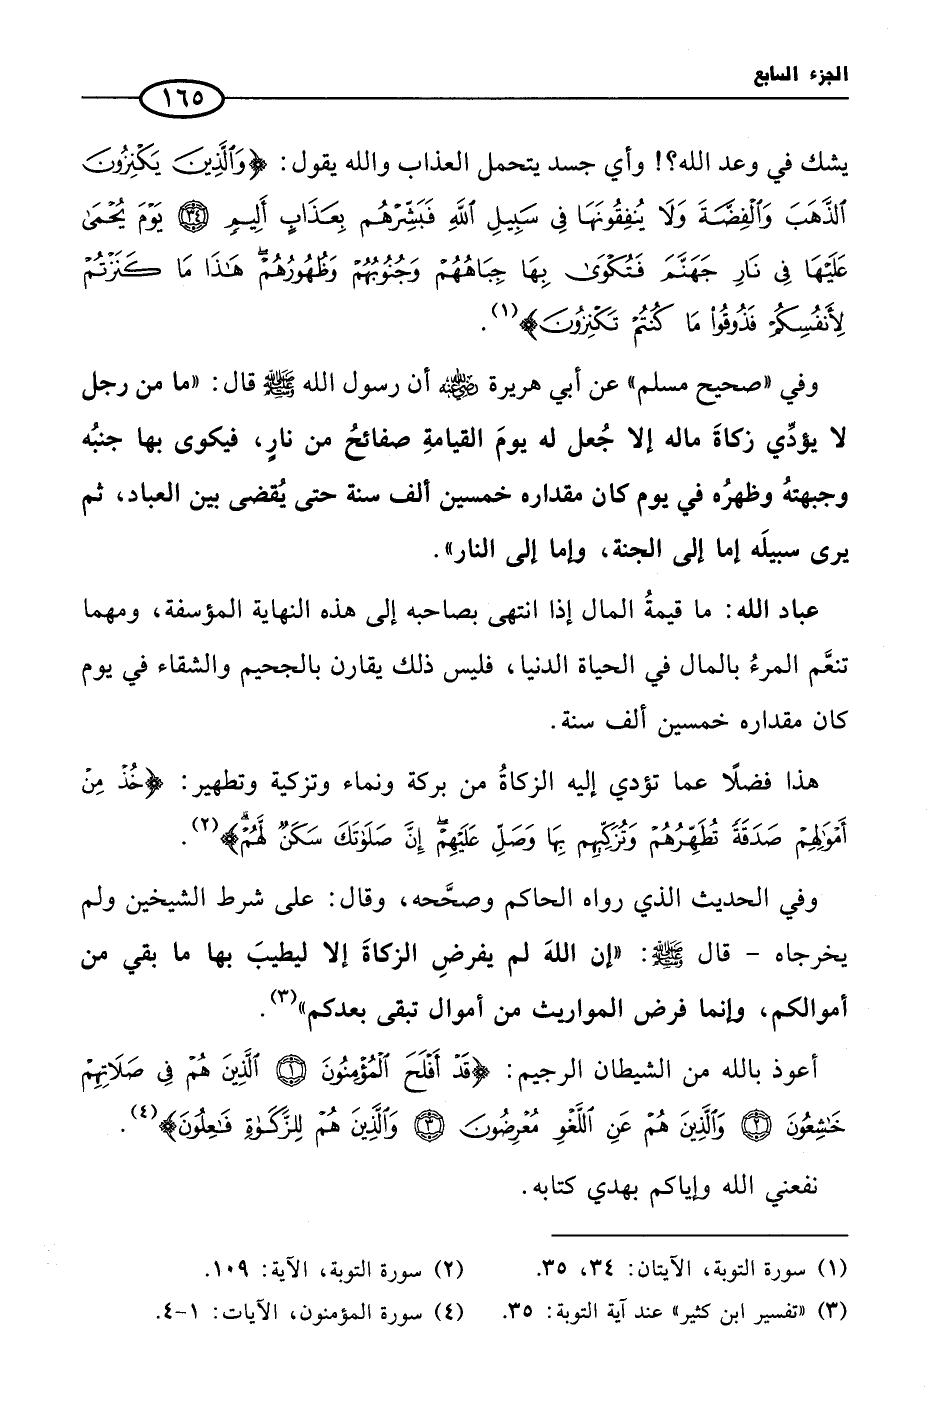 الجزء السابع
١٦٥
يشك في وعد الله؟! وأي جسد يتحمل العذاب والله يقول: ﴿وَٱلَّذِينَ يَكْنِزُونَ
ٱلذَّهَبَ وَٱلْفِضَّةَ وَلَا يُنفِقُونَهَا فِى سَبِيلِ ٱللَّهِ فَبَشِّرْهُم بِعَذَابٍ أَلِيمٍ ۝٣٤ يَوْمَ يُحْمَىٰ
عَلَيْهَا فِى نَارِ جَهَنَّمَ فَتُكْوَىٰ بِهَا جِبَاهُهُمْ وَجُنُوبُهُمْ وَظُهُورُهُمْ ۖ هَٰذَا مَا كَنَزْتُمْ
لِأَنفُسِكُمْ فَذُوقُوا۟ مَا كُنتُمْ تَكْنِزُونَ﴾(١).
وفي «صحيح مسلم» عن أبي هريرة رضي الله عنه أن رسول الله ﷺ قال: «ما من رجل
لا يؤدِّي زكاةَ ماله إلا جُعل له يومَ القيامةِ صفائحُ من نارٍ، فيكوى بها جنبُه
وجبهتهُ وظهرُه في يوم كان مقداره خمسين ألف سنة حتى يُقضى بين العباد، ثم
يرى سبيلَه إما إلى الجنة، وإما إلى النار».
عباد الله: ما قيمةُ المال إذا انتهى بصاحبه إلى هذه النهاية المؤسفة، ومهما
تنعَّم المرءُ بالمال في الحياة الدنيا، فليس ذلك يقارن بالجحيم والشقاء في يوم
كان مقداره خمسين ألف سنة.
هذا فضلًا عما تؤدي إليه الزكاةُ من بركة ونماء وتزكية وتطهير: ﴿خُذْ مِنْ
أَمْوَٰلِهِمْ صَدَقَةً تُطَهِّرُهُمْ وَتُزَكِّيهِم بِهَا وَصَلِّ عَلَيْهِمْ ۖ إِنَّ صَلَوٰتَكَ سَكَنٌ لَّهُمْ ۗ﴾(٢).
وفي الحديث الذي رواه الحاكم وصحَّحه، وقال: على شرط الشيخين ولم
يخرجاه - قال ﷺ: «إن اللهَ لم يفرضِ الزكاةَ إلا ليطيبَ بها ما بقي من
أموالكم، وإنما فرض المواريث من أموال تبقى بعدكم»(٣).
أعوذ بالله من الشيطان الرجيم: ﴿قَدْ أَفْلَحَ ٱلْمُؤْمِنُونَ ۝١ ٱلَّذِينَ هُمْ فِى صَلَاتِهِمْ
خَٰشِعُونَ ۝٢ وَٱلَّذِينَ هُمْ عَنِ ٱللَّغْوِ مُعْرِضُونَ ۝٣ وَٱلَّذِينَ هُمْ لِلزَّكَوٰةِ فَٰعِلُونَ﴾(٤).
نفعني الله وإياكم بهدي كتابه.
(١) سورة التوبة، الآيتان: ٣٤، ٣٥. (٢) سورة التوبة، الآية: ١٠٩.
(٣) «تفسير ابن كثير» عند آية التوبة: ٣٥. (٤) سورة المؤمنون، الآيات: ١-٤.